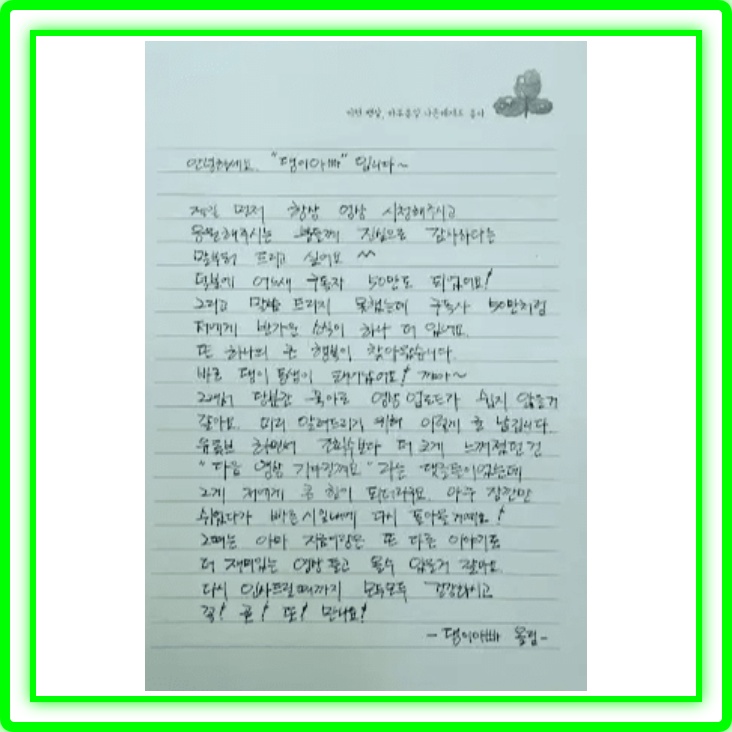 안녕하세요. "댕이아빠" 입니다~
제일 먼저 항상 영상 시청해주시고
응원해주시는 분들께 진심으로 감사하다는
말부터 드리고 싶어요 ^^
덕분에 어느새 구독자 50만도 되었어요!
그리고 말씀 드리지 못했는데 구독자 50만처럼
저에게 반가운 소식이 하나 더 있네요.
또 하나의 큰 행복이 찾아왔습니다.
바로 댕이 동생이 태어났어요! 꺄아~
그래서 당분간 육아로 영상 업로드가 쉽지 않을거
같아요. 미리 알려드리기 위해 이렇게 글 남깁니다.
유튜브 하면서 조회수보다 더 크게 느껴졌던 건
"다음 영상 기다릴게요" 라는 댓글들이었는데
그게 저에게 큰 힘이 되더라구요. 아주 잠깐만
쉬었다가 빠른시일내에 다시 돌아올게요!
그때는 아마 지금이랑은 또 다른 이야기로
더 재미있는 영상 들고 올수 있을거 같아요.
다시 인사드릴때까지 모두모두 건강하시고
꼭! 꼭! 또! 만나요!
- 댕이아빠 올림 -